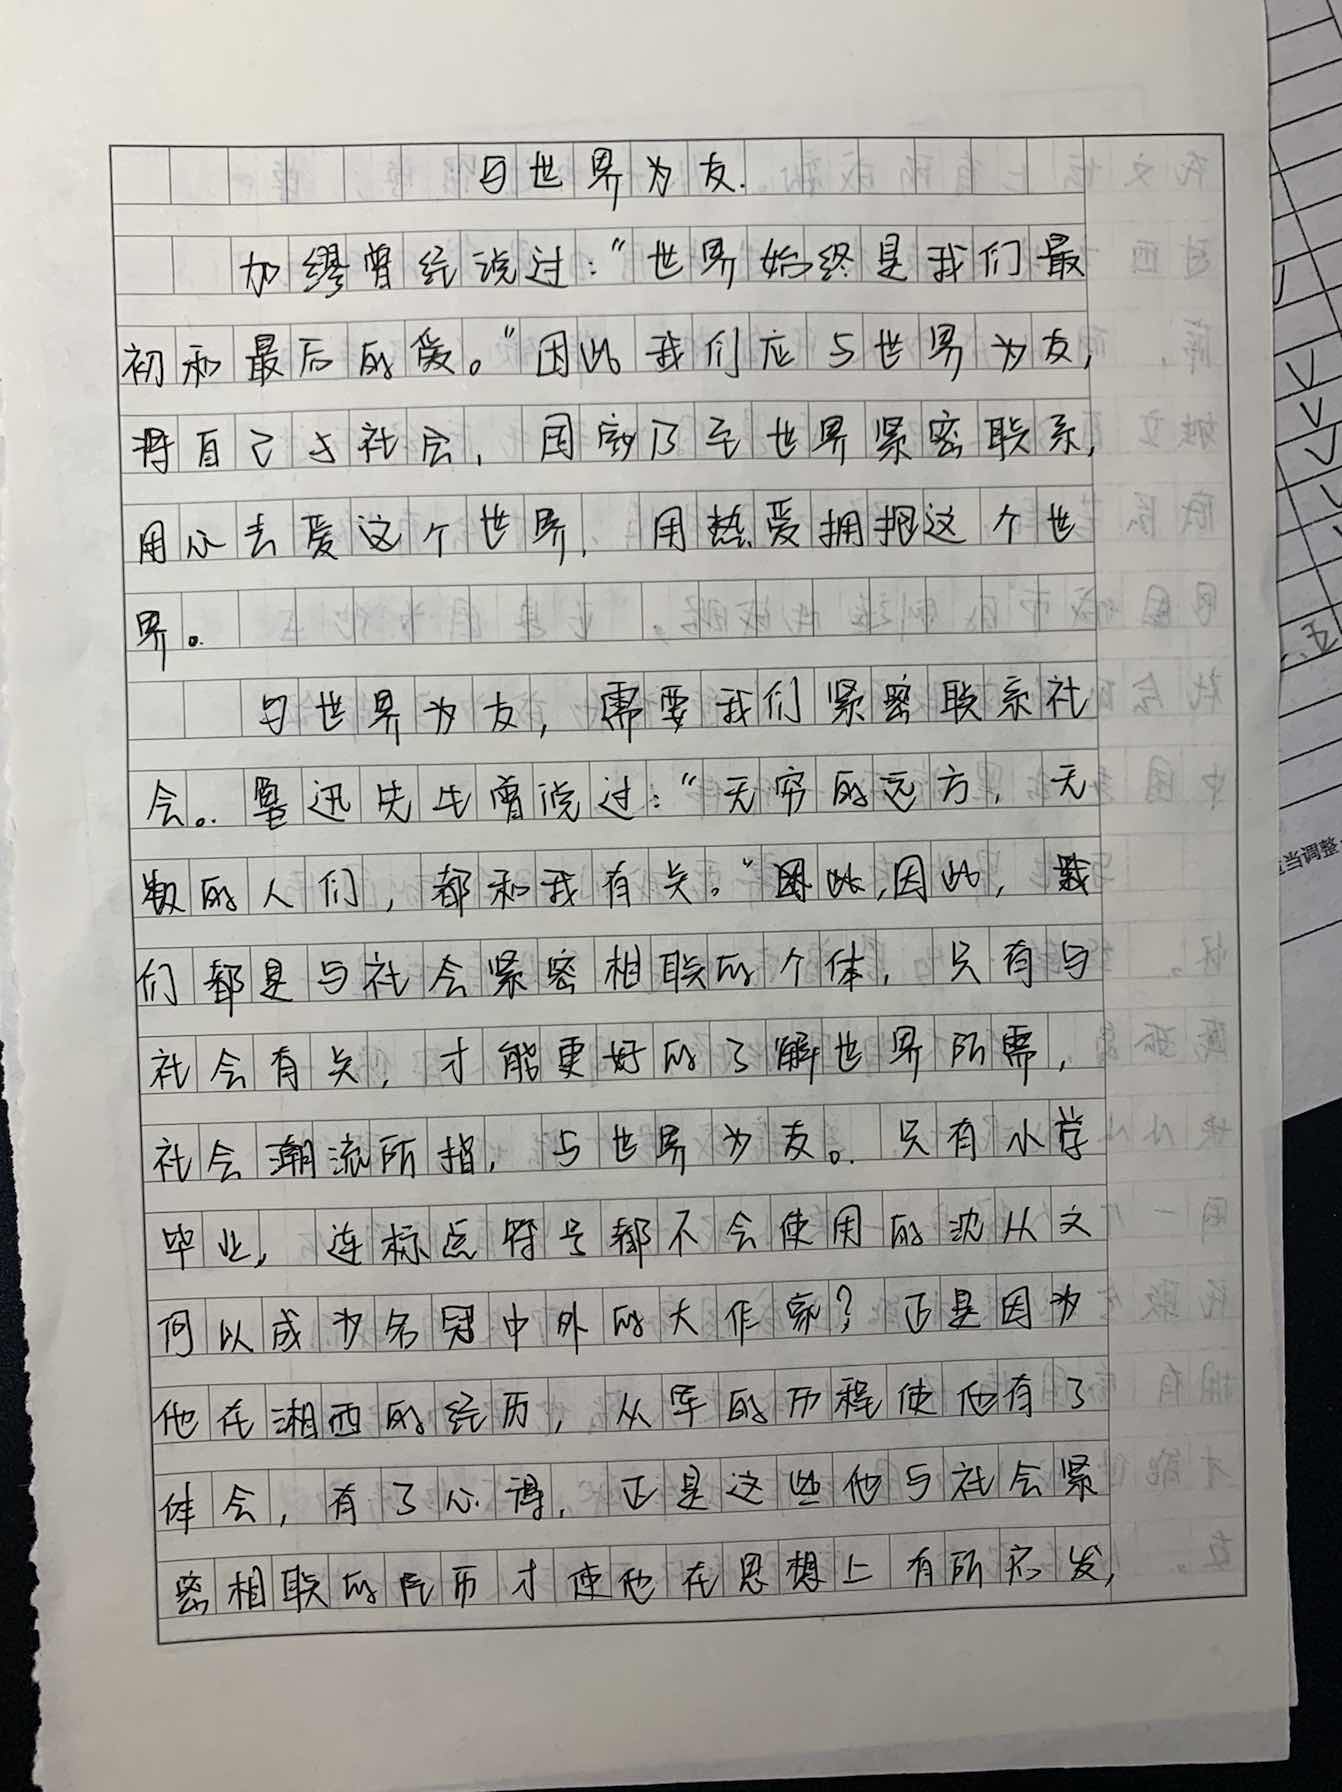 与世界为友.
加缪曾经说过：“世界始终是我们最
初和最后的爱。”因此我们应与世界为友，
将自己与社会，国家乃至世界紧密联系，
用心去爱这个世界，用热爱拥抱这个世
界。
与世界为友，需要我们紧密联系社
会。鲁迅先生曾说过：“无穷的远方，无
数的人们，都和我有关。”因此，我
们都是与社会紧密相联的个体，只有与
社会有关，才能更好的了解世界所需，
社会潮流所指，与世界为友。只有小学
毕业，连标点符号都不会使用的沈从文
何以成为名冠中外的大作家？正是因为
他在湘西的经历，从军的历程使他有了
体会，有了心得，正是这些他与社会紧
密相联的经历才使他在思想上有所启发，
当调整